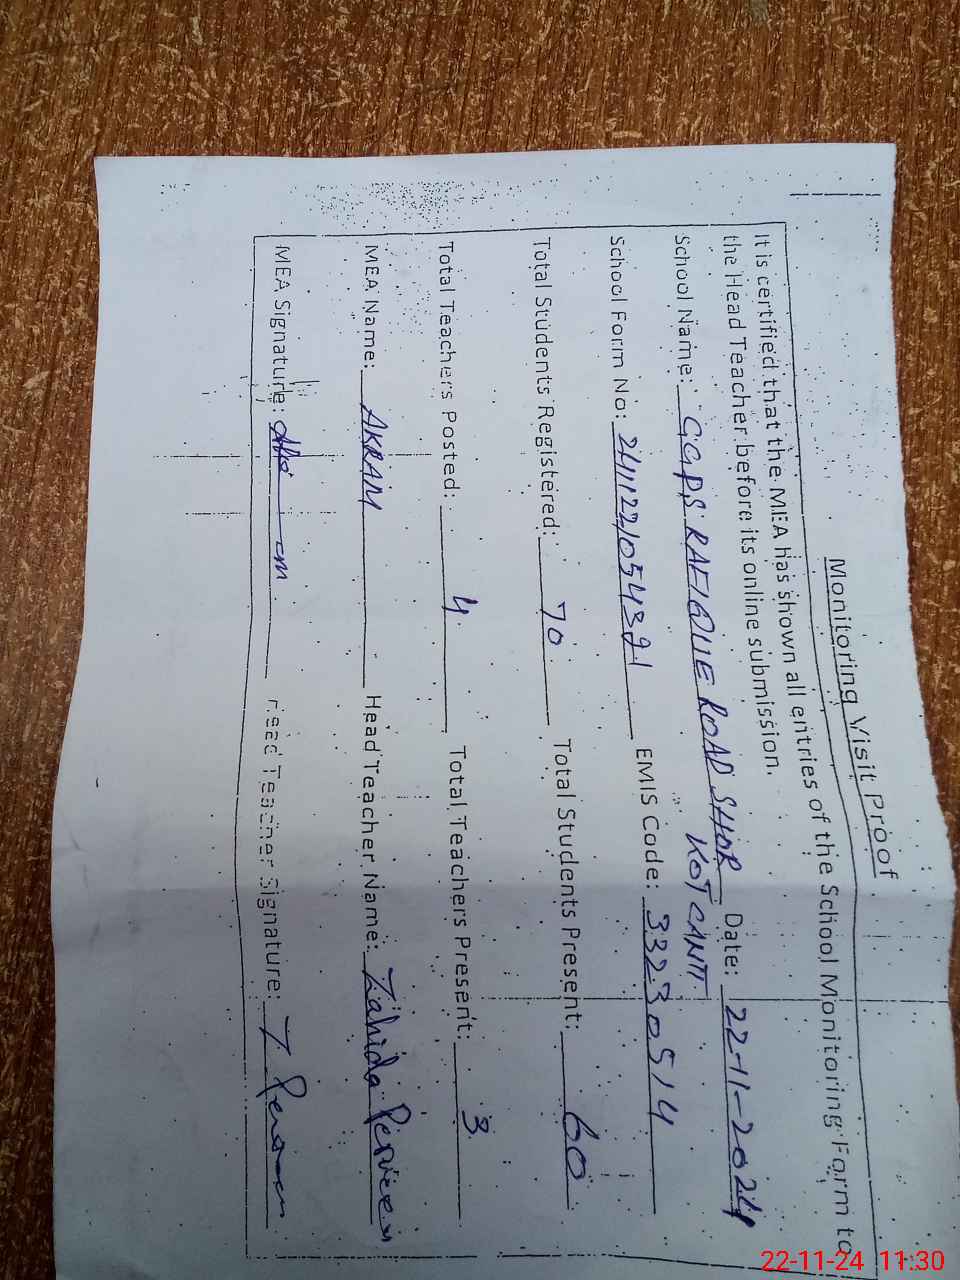 Monitoring Visit Proof
It is certified that the MEA has shown all entries of the School Monitoring Form to
the Head Teacher before its online submission.
School Name: GGPS RAFIQUE ROAD SHOR Date: 22-11-2024
KOT CANTT
School Form No: EMIS Code: 33230514
Total Students Registered: 70 Total Students Present: 60
Total Teachers Posted: 4 Total Teachers Present: 3
MEA Name: AKRAM Head Teacher Name: Zahida Perveen
MEA Signature: Head Teacher Signature: Z Perveen
22-11-24 11:30